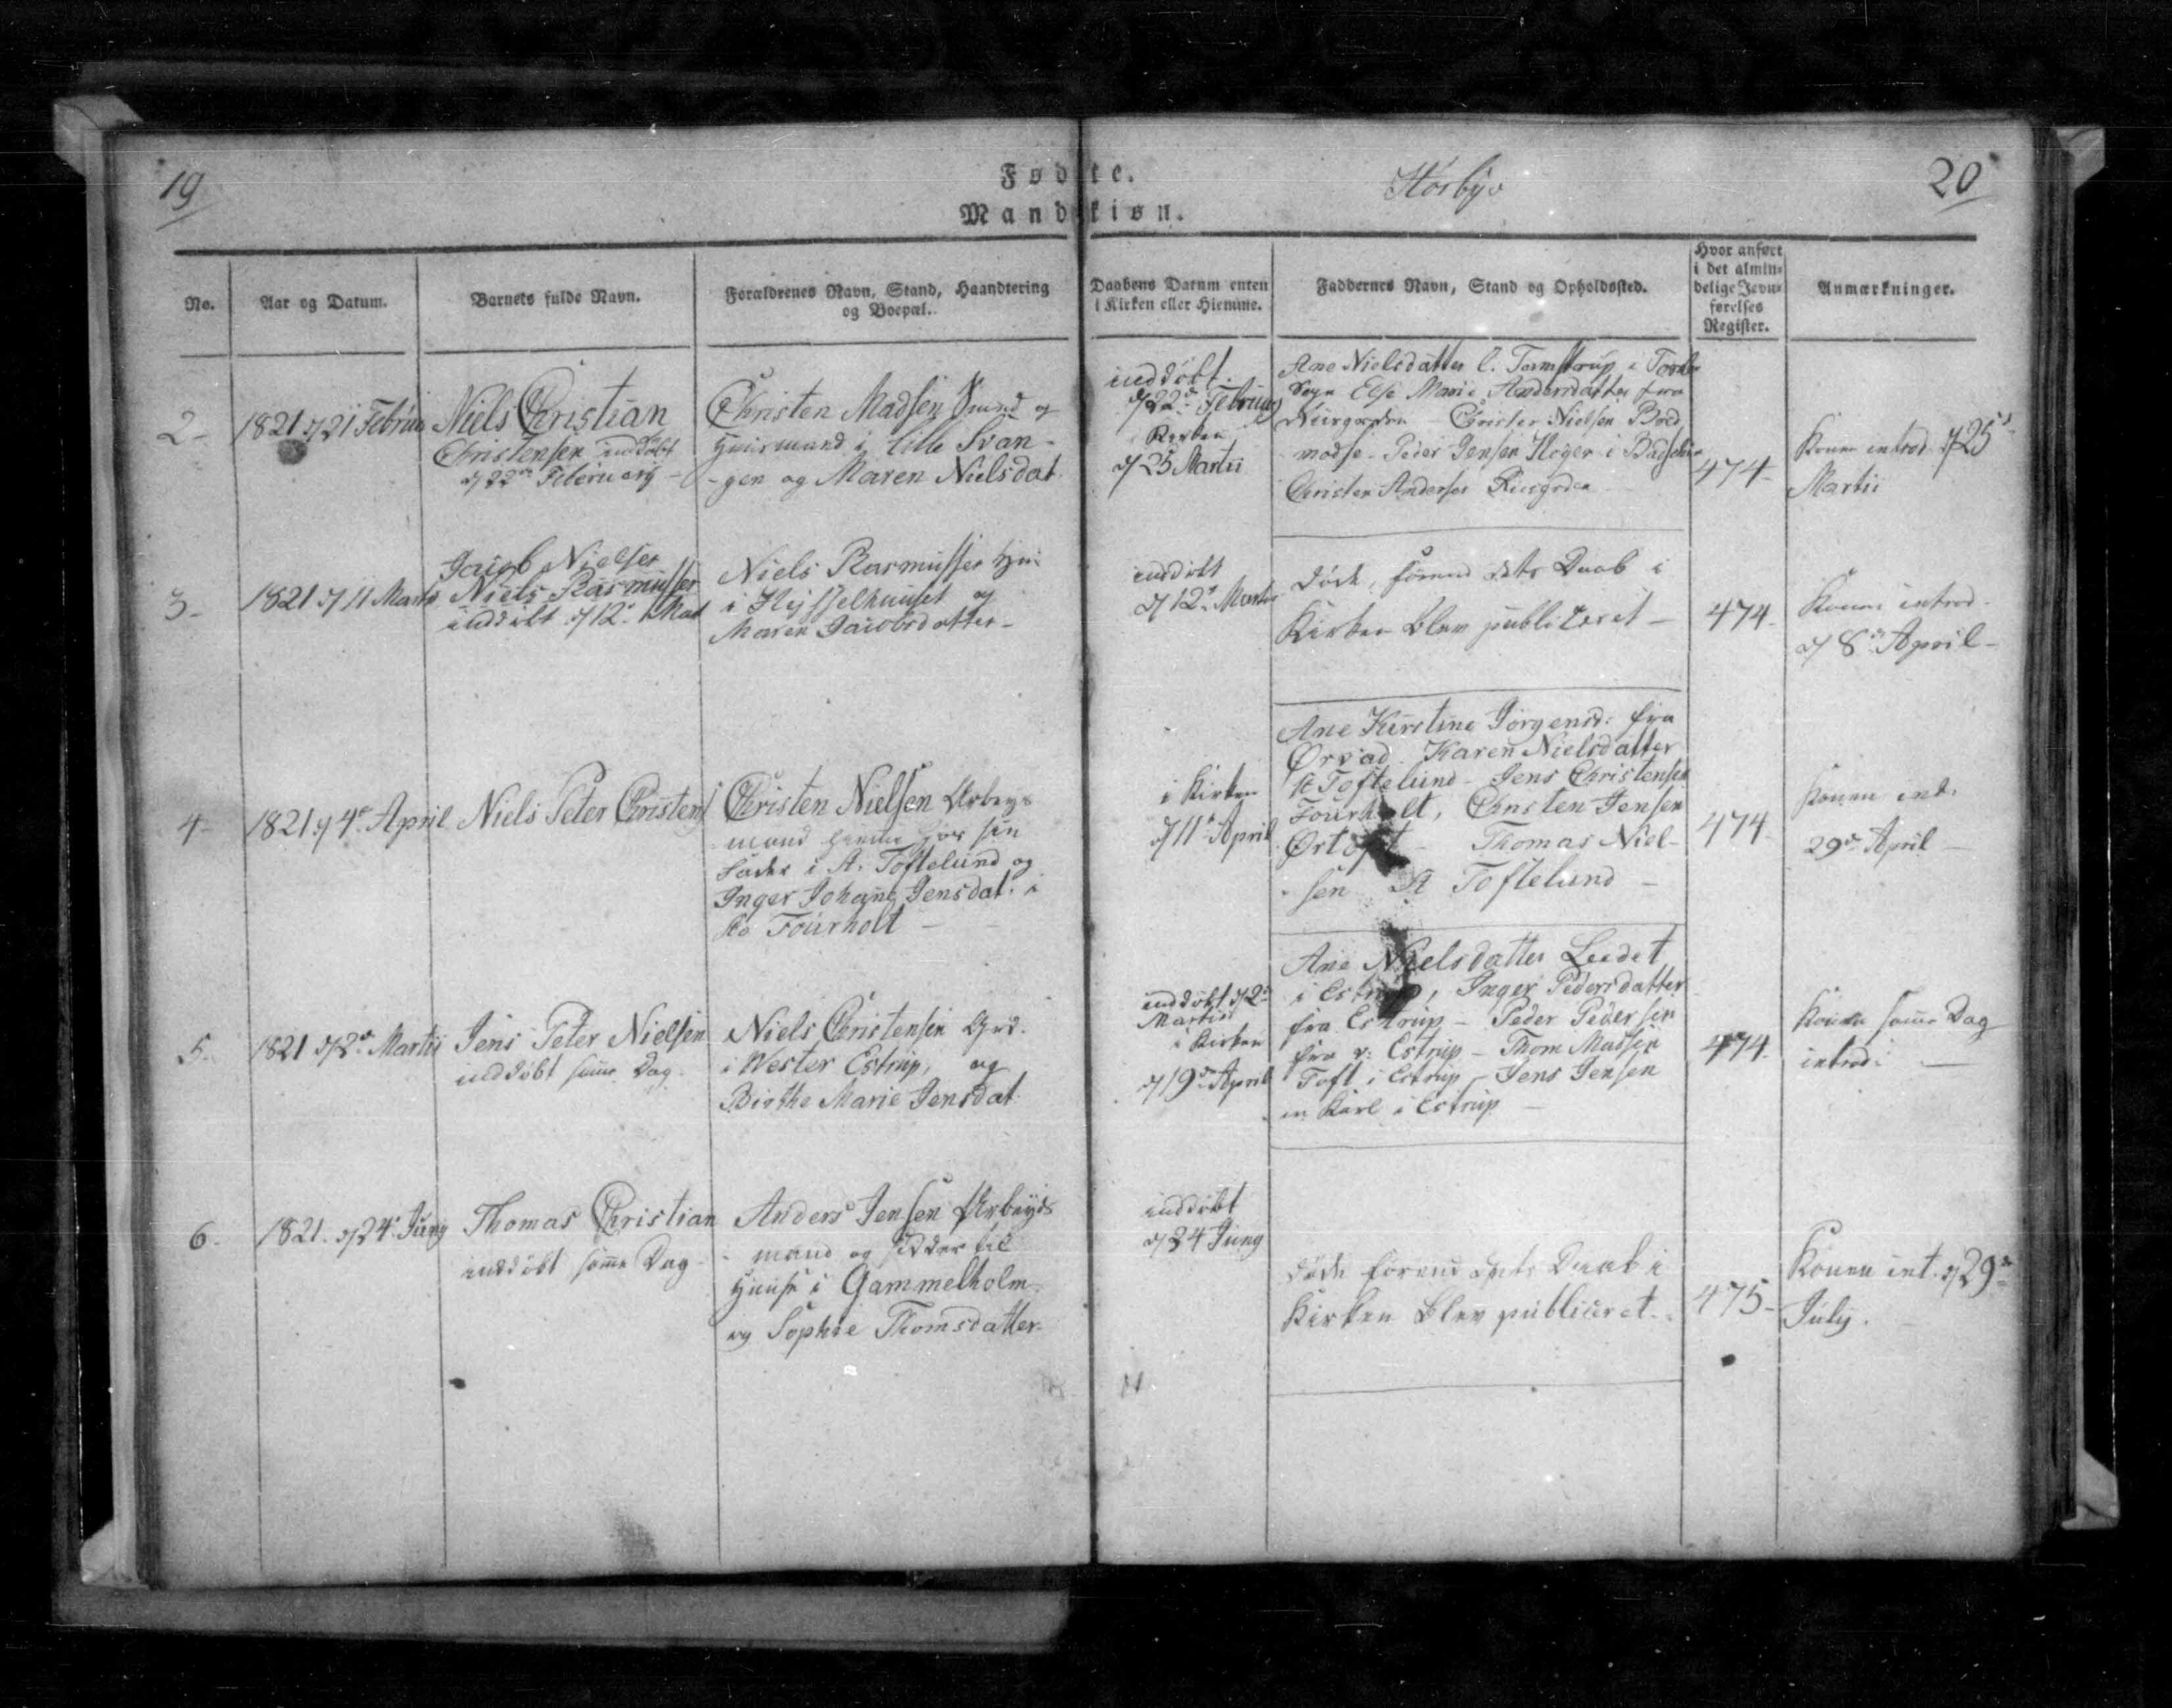 19
Fødte.
Mandkiøn.
20
No.
Aar og Datum.
Barnets fulde Navn.
Forældrenes Navn, Stand, Haandtering
og Boepæl.
Daabens Datum enten
i Kirken eller Hiemme.
Faddernes Navn, Stand og Opholdssted.
Hvor anført
i det almin-
delige Jevn-
førelses
Register.
Anmærkninger.
2-
1821 d 21 Februa
Niels Christian
Christensen inddøbt
d 22de February -
Christen Madsen og
Huusmand i Lille Svan-
-gen og Maren Nielsdat
inddøbt
d 22de Februar
Kirken
d 25 Martii
Ane Nielsdatter l. Tarmstrup i
Sogn Else Marie Andersdatter fra
Christen Nielsen
Peder Jensen i
Christen Andersen
474-
Konen introd. d 25de
Martii
3-
1821 d 11 Marts
Jacob Nielsen
Niels Rasmussen
inddøbt d 12te Mart
Niels Rasmussen
i og
Maren Jacobsdatter-
inddøbt
d 12te Martii
døde, førend dets Daab i
Kirken blev publiceret -
474-
Konen introd.
d 8de April-
4-
1821 d 4de April
Niels Peter Christens
Christen Nielsen Arbeyds
mand hiemme hos sin
Fader i St. Toftelund og
Inger Johane Jensdat. i
Sto Fourholt -
i Kirken
d 11te April
Ane Kirstine Jørgensd: fra
Ørvad. Karen Nielsdatter
St Toftelund - Jens Christensen
Fourholt, Christen Jensen
Thomas Niel-
-sen St Toftelund -
474-
Konen int.
29de April -
5-
1821 d 2de Martii
Jens Peter Nielsen
inddøbt samme Dag.
Niels Christensen Grd.
i Wester Estrup, og
Birthe Marie Jensdat.
inddøbt d 2de
Martii
i Kirken
d 19de April
Ane Nielsdatter Leedet
i Estrup, Inger Pedersdatter
fra Estrup - Peder Pedersen
fra v: Estrup - Thom Massen
Toft i Estrup - Jens Jensen
en Karl i Estrup -
474-
Konen samme Dag
introd: -
6-
1821. d 24de Juny
Thomas Christian
inddøbt samme Dag-
Anders Jensen Arbeyds
mand og sidder til
Huuse i Gammelholm-
og Sophie Thomsdatter-
inddøbt
d 24 Juny
døde førend dets Daab i
Kirken blev publiceret.
475-
Konen int. d 29de
July.